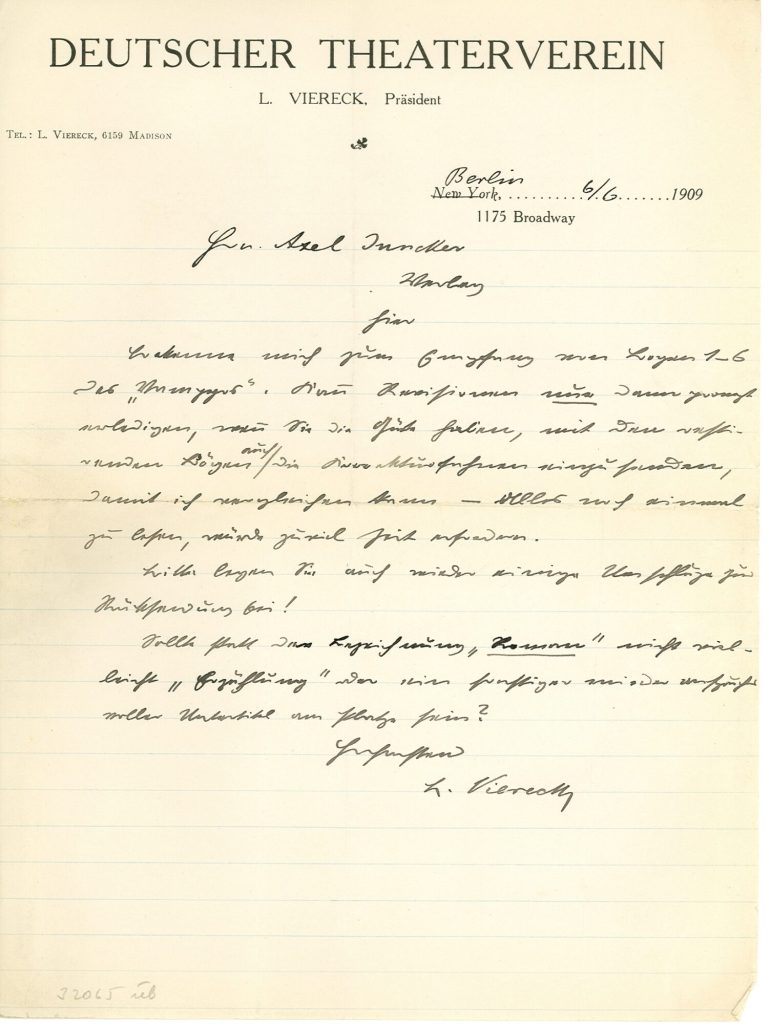 DEUTSCHER THEATERVEREIN
L. VIERECK, Präsident
TEL.: L. VIERECK, 6159 MADISON
Berlin
New York, ..........6/6.......1909
1175 Broadway
Hrn. Axel Juncker
Verlag
hier
Bekenne mich zum Empfang von Bogen 1–6
des „Vampyrs“. Kann Revisionen nur dann prompt
erledigen, wenn Sie die Güte haben, mit den resti-
renden Bögen auch die Korrekturfahnen einzusenden,
damit ich vergleichen kann – Alles noch einmal
zu lesen, würde zuviel Zeit erfordern.
Bitte legen Sie auch wieder einige Umschläge zur
Rücksendung bei!
Sollte statt der Bezeichnung „Roman“ nicht viel-
leicht „Erzählung“ oder ein sonstiger minder anspruchs
voller Untertitel am Platze sein?
Hochachtend
L. Viereck
32065 üb